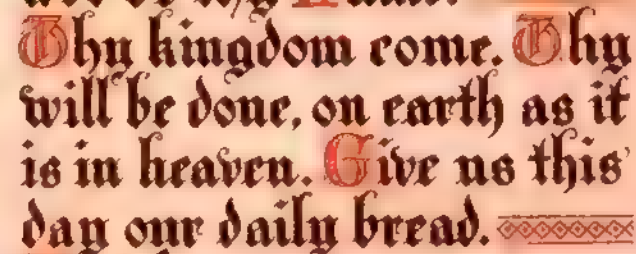 Thy kingdom come. Thy
will be done, on earth as it
is in heaven. Give us this
day our daily bread.